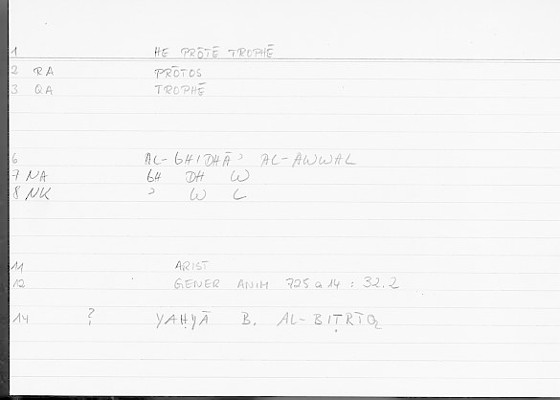 1 HE PRŌTĒ TROPHĒ
2 RA PRŌTOS
3 QA TROPHĒ
6 AL-GHIDHĀʾ AL-AWWAL
7 NA GH DH W
8 NK ʾ W L
11 ARIST
12 GENER ANIM 725 a 14 : 32.2
14 ? YAḤYĀ B. AL-BIṬRĪQ